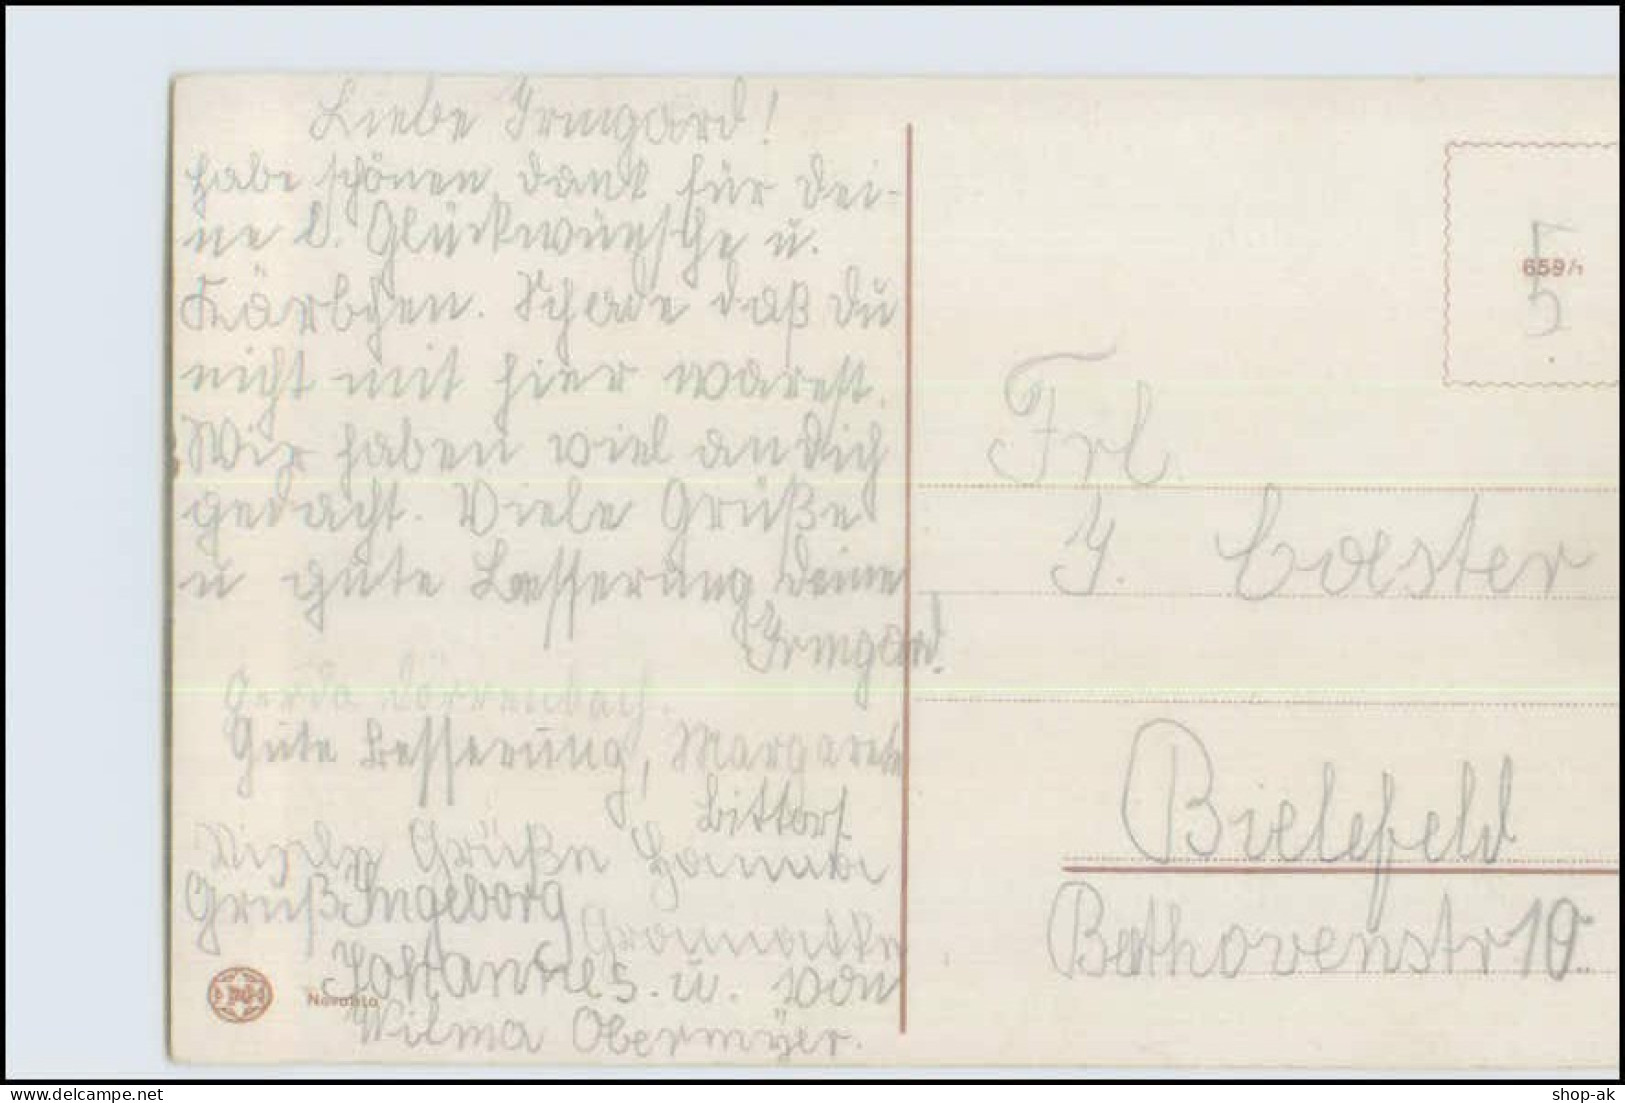 Liebe Irmgard!
habe schönen dank für dei-
ne l. Glückwünsche u.
Kärtchen. Schade daß du
nicht mit hier warest.
Wir haben viel an dich
gedacht. Viele Grüße
u gute Besserung deine
Irmgard.
Gerda Dörrenbach.
Gute Besserung, Margarete
Bittorf
Viele Grüße Hanna
Gruß Ingeborg
Johannes. u. von
Wilma Obermeyer.
659/1
5
Frl.
I. Coester
Bielefeld
Bethovenstr 10
Novohto
shop-ak